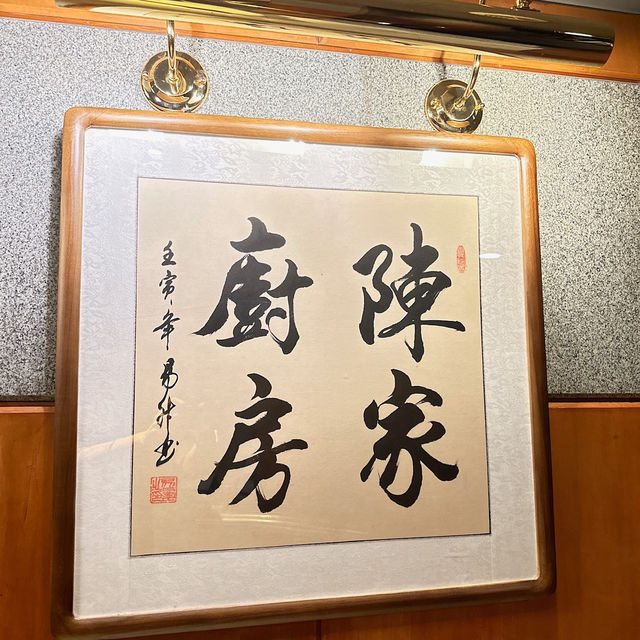 陳家
廚房
壬寅年易升书